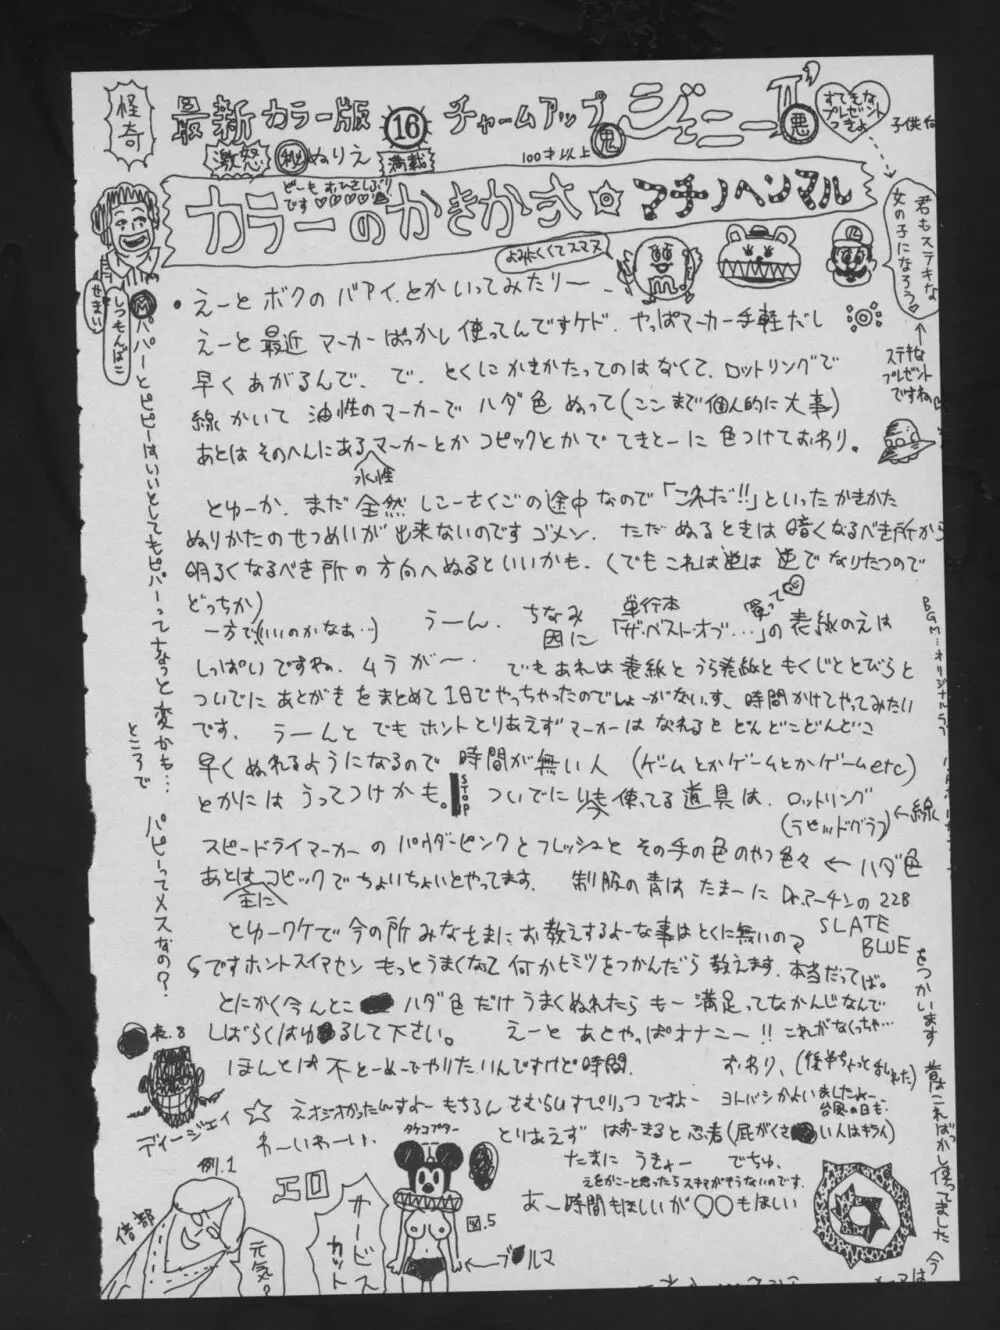 怪奇
最新カラー版
16
チャームアップ
鬼
ジェニー
悪
すてきな
プレゼント
っきょ
激怒
㊙
ぬりえ
満載
100才以上
どーもおひさしぶり
です♡♡♡♡
カラーのかきかた
マチノヘンマル
よみにくくてスマヌ
君もステキな
女の子になろう♡
ステキな
プレゼント
ですね
せまい
しつもんばこ
パパーとピピーはいいとしてもピパーってなっと変かも…
ところで
パピーってメスなの?
・えーと ボクの バアイ、とかいってみたりー
えーと 最近 マーカーばっかし使ってんですケド、やっぱマーカー手軽だし
早くあがるんで、で、とくにかきかたってのはなくて、ロットリングで
線かいて 油性のマーカーで ハダ色 ぬって(ここまで個人的に大事)
あとはそのへんにある水性マーカーとかコピックとかで てきとーに 色つけておわり。
とゆーか、まだ全然 しこーさくごの途中なので「これだ!!」といったかきかた
ぬりかたのせつめいが出来ないのですゴメン、ただぬるときは暗くなるべき所から
明るくなるべき所の方向へぬるといいかも、(でもこれは逆は逆でなりたつので
どっちか)
一方で(いいのかなあ…)
うーん、ちなみ
因に
単行本
「ザ・ベストオブ…」の表紙のえは
買って♡
しっぱいですね、ムラが〜、でもあれは表紙とうら表紙ともくじととびらと
ついでにあとがきをまとめて1日でやっちゃったのでしょーがないっす、時間かけてやってみたい
です、うーんと でもホントとりあえずマーカーはなれると どんどこどんどこ
早くぬれるようになるので 時間が無い人 (ゲームとかゲームとかゲームetc)
とかにはうってつけかも。
STOP
ついでに 使ってる道具は、ロットリング
(ラピッドグラフ)
←線
スピードライマーカーの パウダーピンクとフレッシュと その手の色のやつ色々 ← ハダ色
あとは主にコピックでちょいちょいとやってます、制服の青は たまーに Dr.マーチンの 22B
SLATE
BLUE
をつかいます
とゆーワケで今の所みなさまにお教えするよーな事はとくに無いので
ですホントスイマセン もっとうまくなって何かヒミツをつかんだら教えます、本当だってば。
とにかく今んとこ ハダ色だけうまくぬれたらもー満足ってなかんじなんで
しばらくはゆるして下さい。 えーと あとやっぱオナニー!! これがなくっちゃ…
ほんとは不とーめーでやりたいんですけど時間、
おわり、(後半ちょっと
ヨドバシかよいましたよー、
台風の日も、
昔はこればっかし使ってました 今
BGM…オリジナルラブ
表.8
ディージェイ
☆ネオジオかったんすよー もちろん さむらいすぴりっつ ですよー
わーいわーい、
タケコプター
とりあえず はおーまると忍者(屁がくさい人はキライ)
たまに うきょー でちゅ、
えをかこーと思ったらスキマがそうないのです、
あ〜時間もほしいが〇〇もほしい
例.1
信部
元気?
エロ
サービス
カット
図.5
←ブルマ